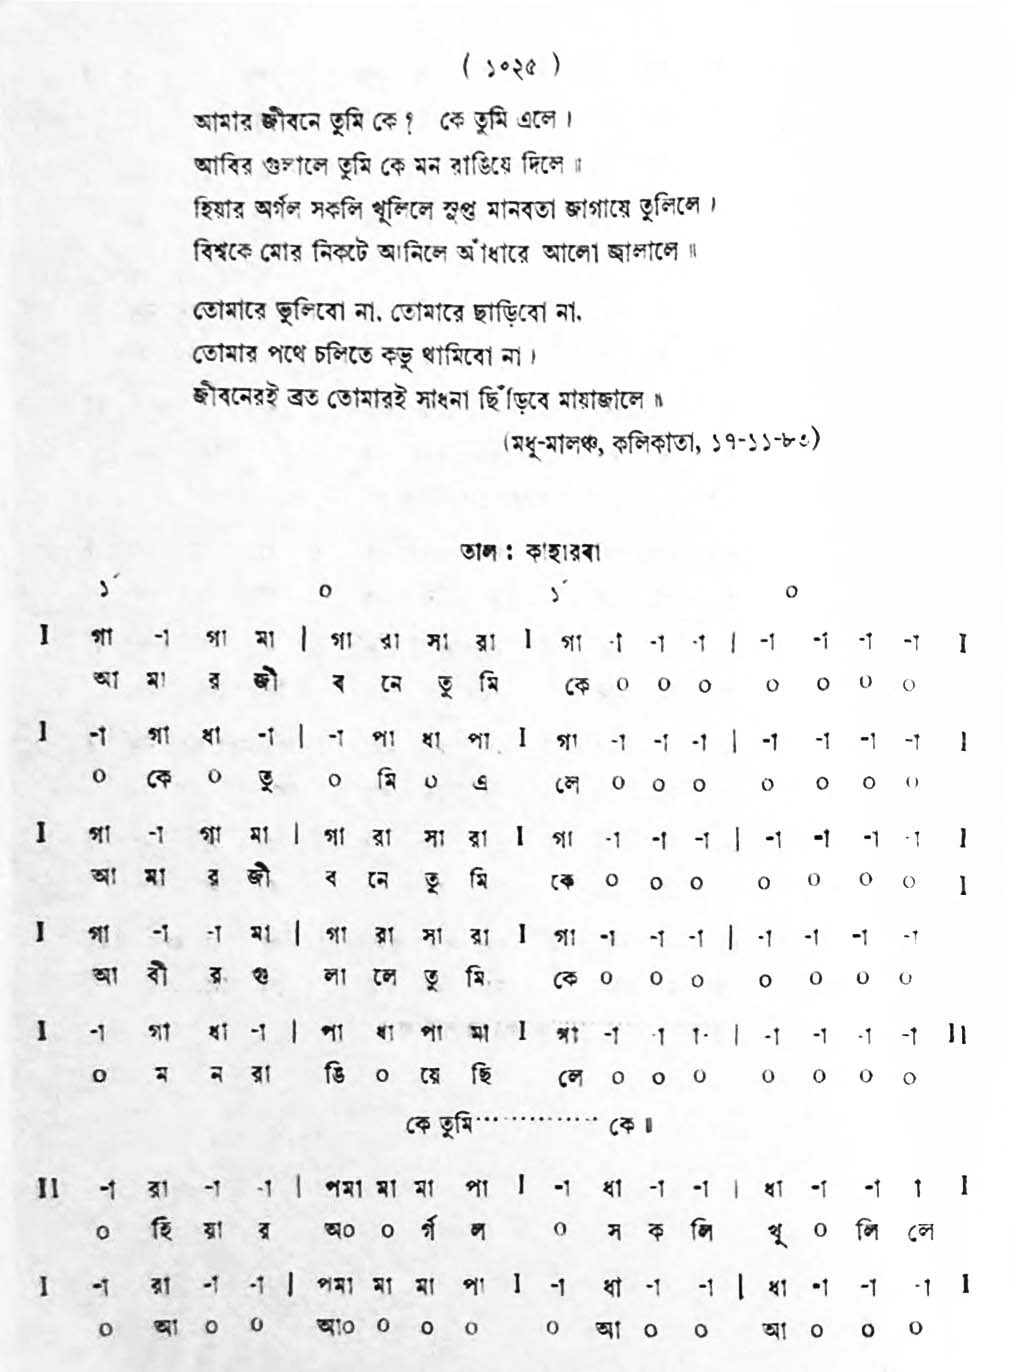 ( ১০২৫ )
আমার জীবনে তুমি কে ? কে তুমি এলে ।
আবির গুলালে তুমি কে মন রাঙিয়ে দিলে ॥
হিয়ার অর্গল সকলি খুলিলে সুপ্ত মানবতা জাগায়ে তুলিলে ।
বিশ্বকে মোর নিকটে আনিলে আঁধারে আলো জ্বালালে ॥
তোমারে ভুলিবো না, তোমারে ছাড়িবো না,
তোমার পথে চলিতে কভু থামিবো না ।
জীবনেরই ব্রত তোমারই সাধনা ছিঁড়িবে মায়াজালে ॥
(মধু-মালঞ্চ, কলিকাতা, ১৭-১১-৮৩)
তাল : কাহারবা
১´ ০ ১´ ০
I গা -া গা মা | গা রা সা রা I গা -া -া -া | -া -া -া -া I
আ মা র জী ব নে তু মি কে ০ ০ ০ ০ ০ ০ ০
I -া গা ধা -া | -া পা ধা পা I গা -া -া -া | -া -া -া -া I
০ কে ০ তু ০ মি ০ এ লে ০ ০ ০ ০ ০ ০ ০
I গা -া গা মা | গা রা সা রা I গা -া -া -া | -া -া -া -া I
আ মা র জী ব নে তু মি কে ০ ০ ০ ০ ০ ০ ০ I
I গা -া -া মা | গা রা সা রা I গা -া -া -া | -া -া -া -া
আ বী র গু লা লে তু মি কে ০ ০ ০ ০ ০ ০ ০
I -া গা ধা -া | পা ধা পা মা I গা -া -া -া | -া -া -া -া II
০ ম ন রা ঙি ০ য়ে ছি লে ০ ০ ০ ০ ০ ০ ০
কে তুমি·············· কে ॥
II -া রা -া -া | পমা মা মা পা I -া ধা -া -া | ধা -া -া া I
০ হি য়া র অ০ ০ র্গ ল ০ স ক লি খু ০ লি লে
I -া রা -া -া | পমা মা মা পা I -া ধা -া -া | ধা -া -া -া I
০ আ ০ ০ আ০ ০ ০ ০ ০ আ ০ ০ আ ০ ০ ০